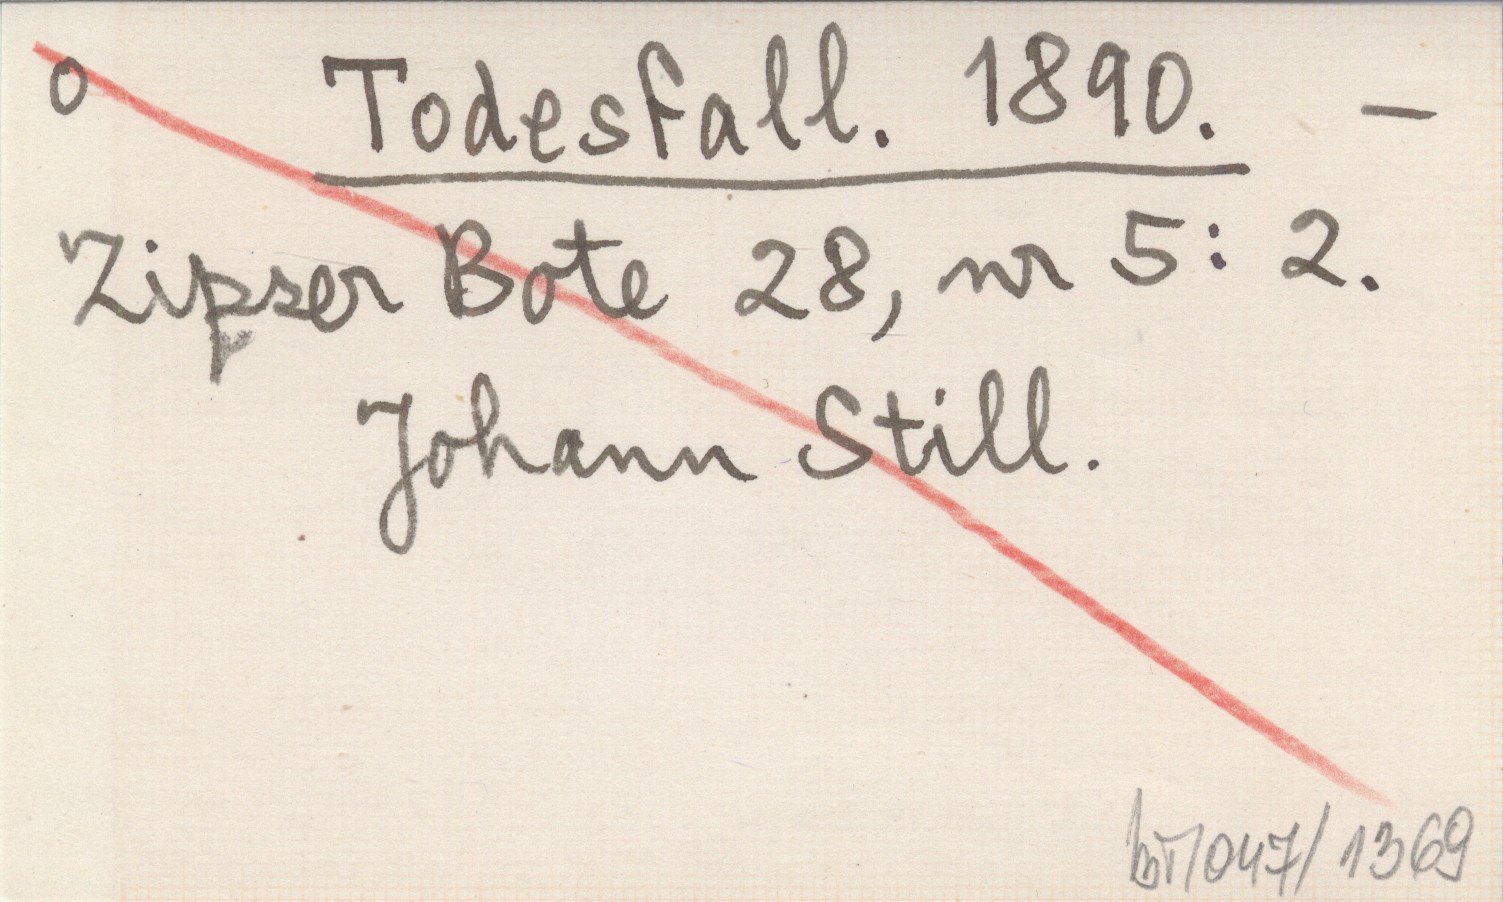 o Todesfall. 1890. —
Zipser Bote 28, nr 5: 2.
Johann Still.
/047/ 1369